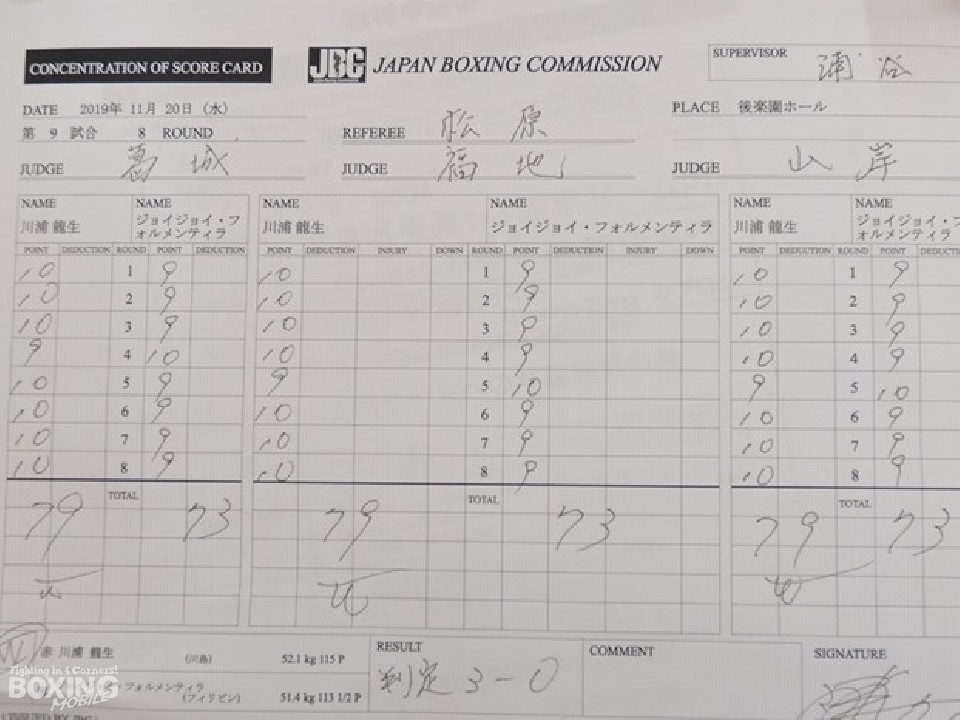 CONCENTRATION OF SCORE CARD
JBC JAPAN BOXING COMMISSION
SUPERVISOR 浦谷
DATE 2019年 11月 20日 (水)
PLACE 後楽園ホール
第 9 試合 8 ROUND
REFEREE 松原
JUDGE 葛城
JUDGE 福地
JUDGE 山岸
NAME NAME NAME NAME NAME NAME
川浦 龍生 ジョイジョイ・フォルメンティラ 川浦 龍生 ジョイジョイ・フォルメンティラ 川浦 龍生 ジョイジョイ・フォルメンティラ
POINT DEDUCTION ROUND POINT DEDUCTION POINT DEDUCTION INJURY DOWN ROUND POINT DEDUCTION INJURY DOWN POINT DEDUCTION ROUND POINT DEDUCTI
10 1 9 10 1 9 10 1 9
10 2 9 10 2 9 10 2 9
10 3 9 10 3 9 10 3 9
9 4 10 10 4 9 10 4 9
10 5 9 9 5 10 9 5 10
10 6 9 10 6 9 10 6 9
10 7 9 10 7 9 10 7 9
10 8 9 10 8 9 10 8 9
TOTAL TOTAL TOTAL
79 73 79 73 79 73
W W W
W 赤 川浦 龍生 (川島) 52.1 kg 115 P
フォルメンティラ (フィリピン) 51.4 kg 113 1/2 P
RESULT 判定 3-0
COMMENT
SIGNATURE
Fighting in 4 Corners!
BOXING
MOBILE